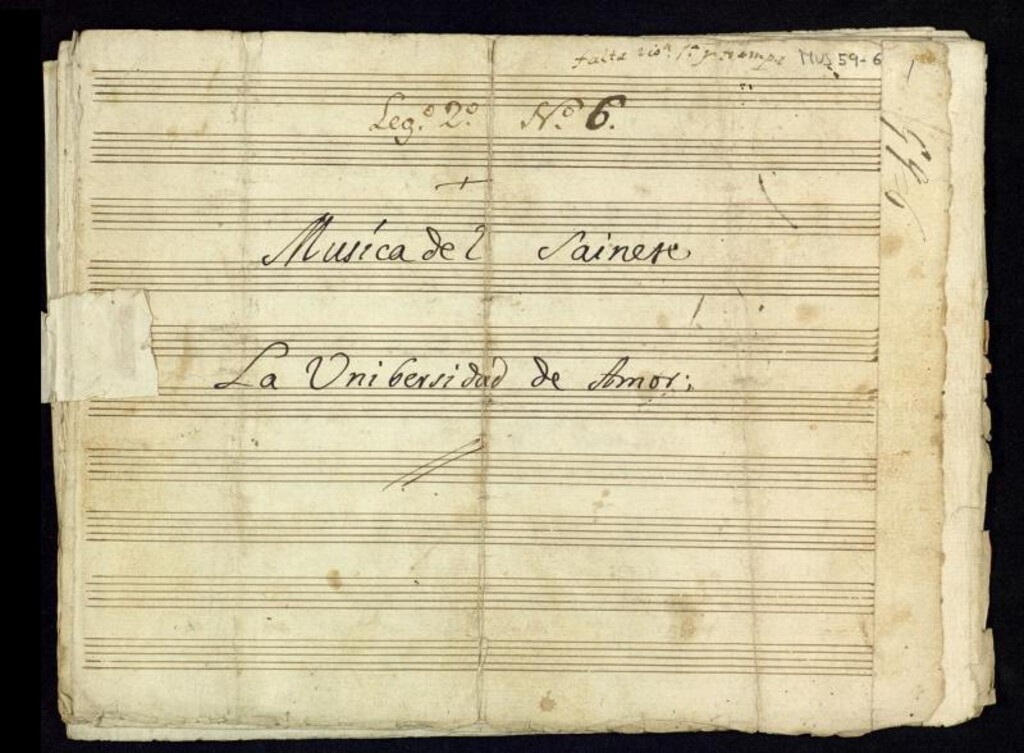 falta vio.n 1.a y trompa MUS 59-6
Leg.o 2.o N.o 6.
Musíca del Sainete
La Unibersidad de Amor;
59-6